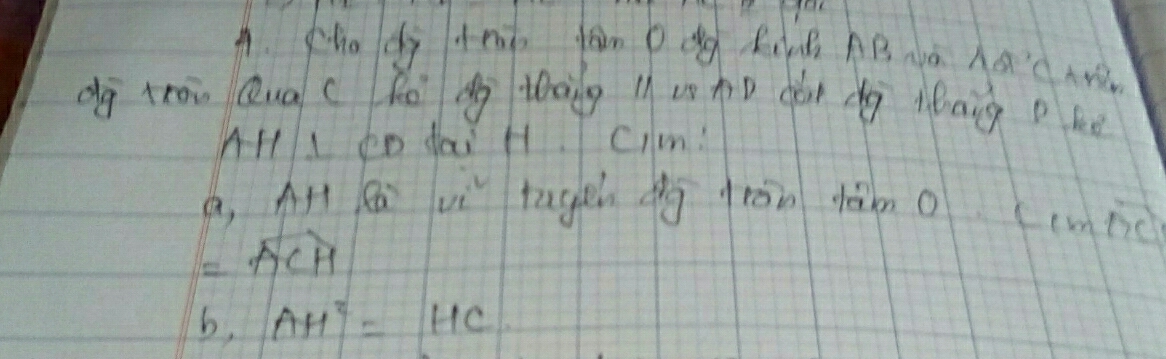 A. Cho đg tròn tâm O đg kính AB và C trên
đg tròn Qua C kẻ đg thẳng // vs AD cắt đg thẳng D kẻ
AH ⊥ CD tại H. C/m:
a, AH là tuyến đg tròn tâm O. C/m
= ACH
b, AH² = HC